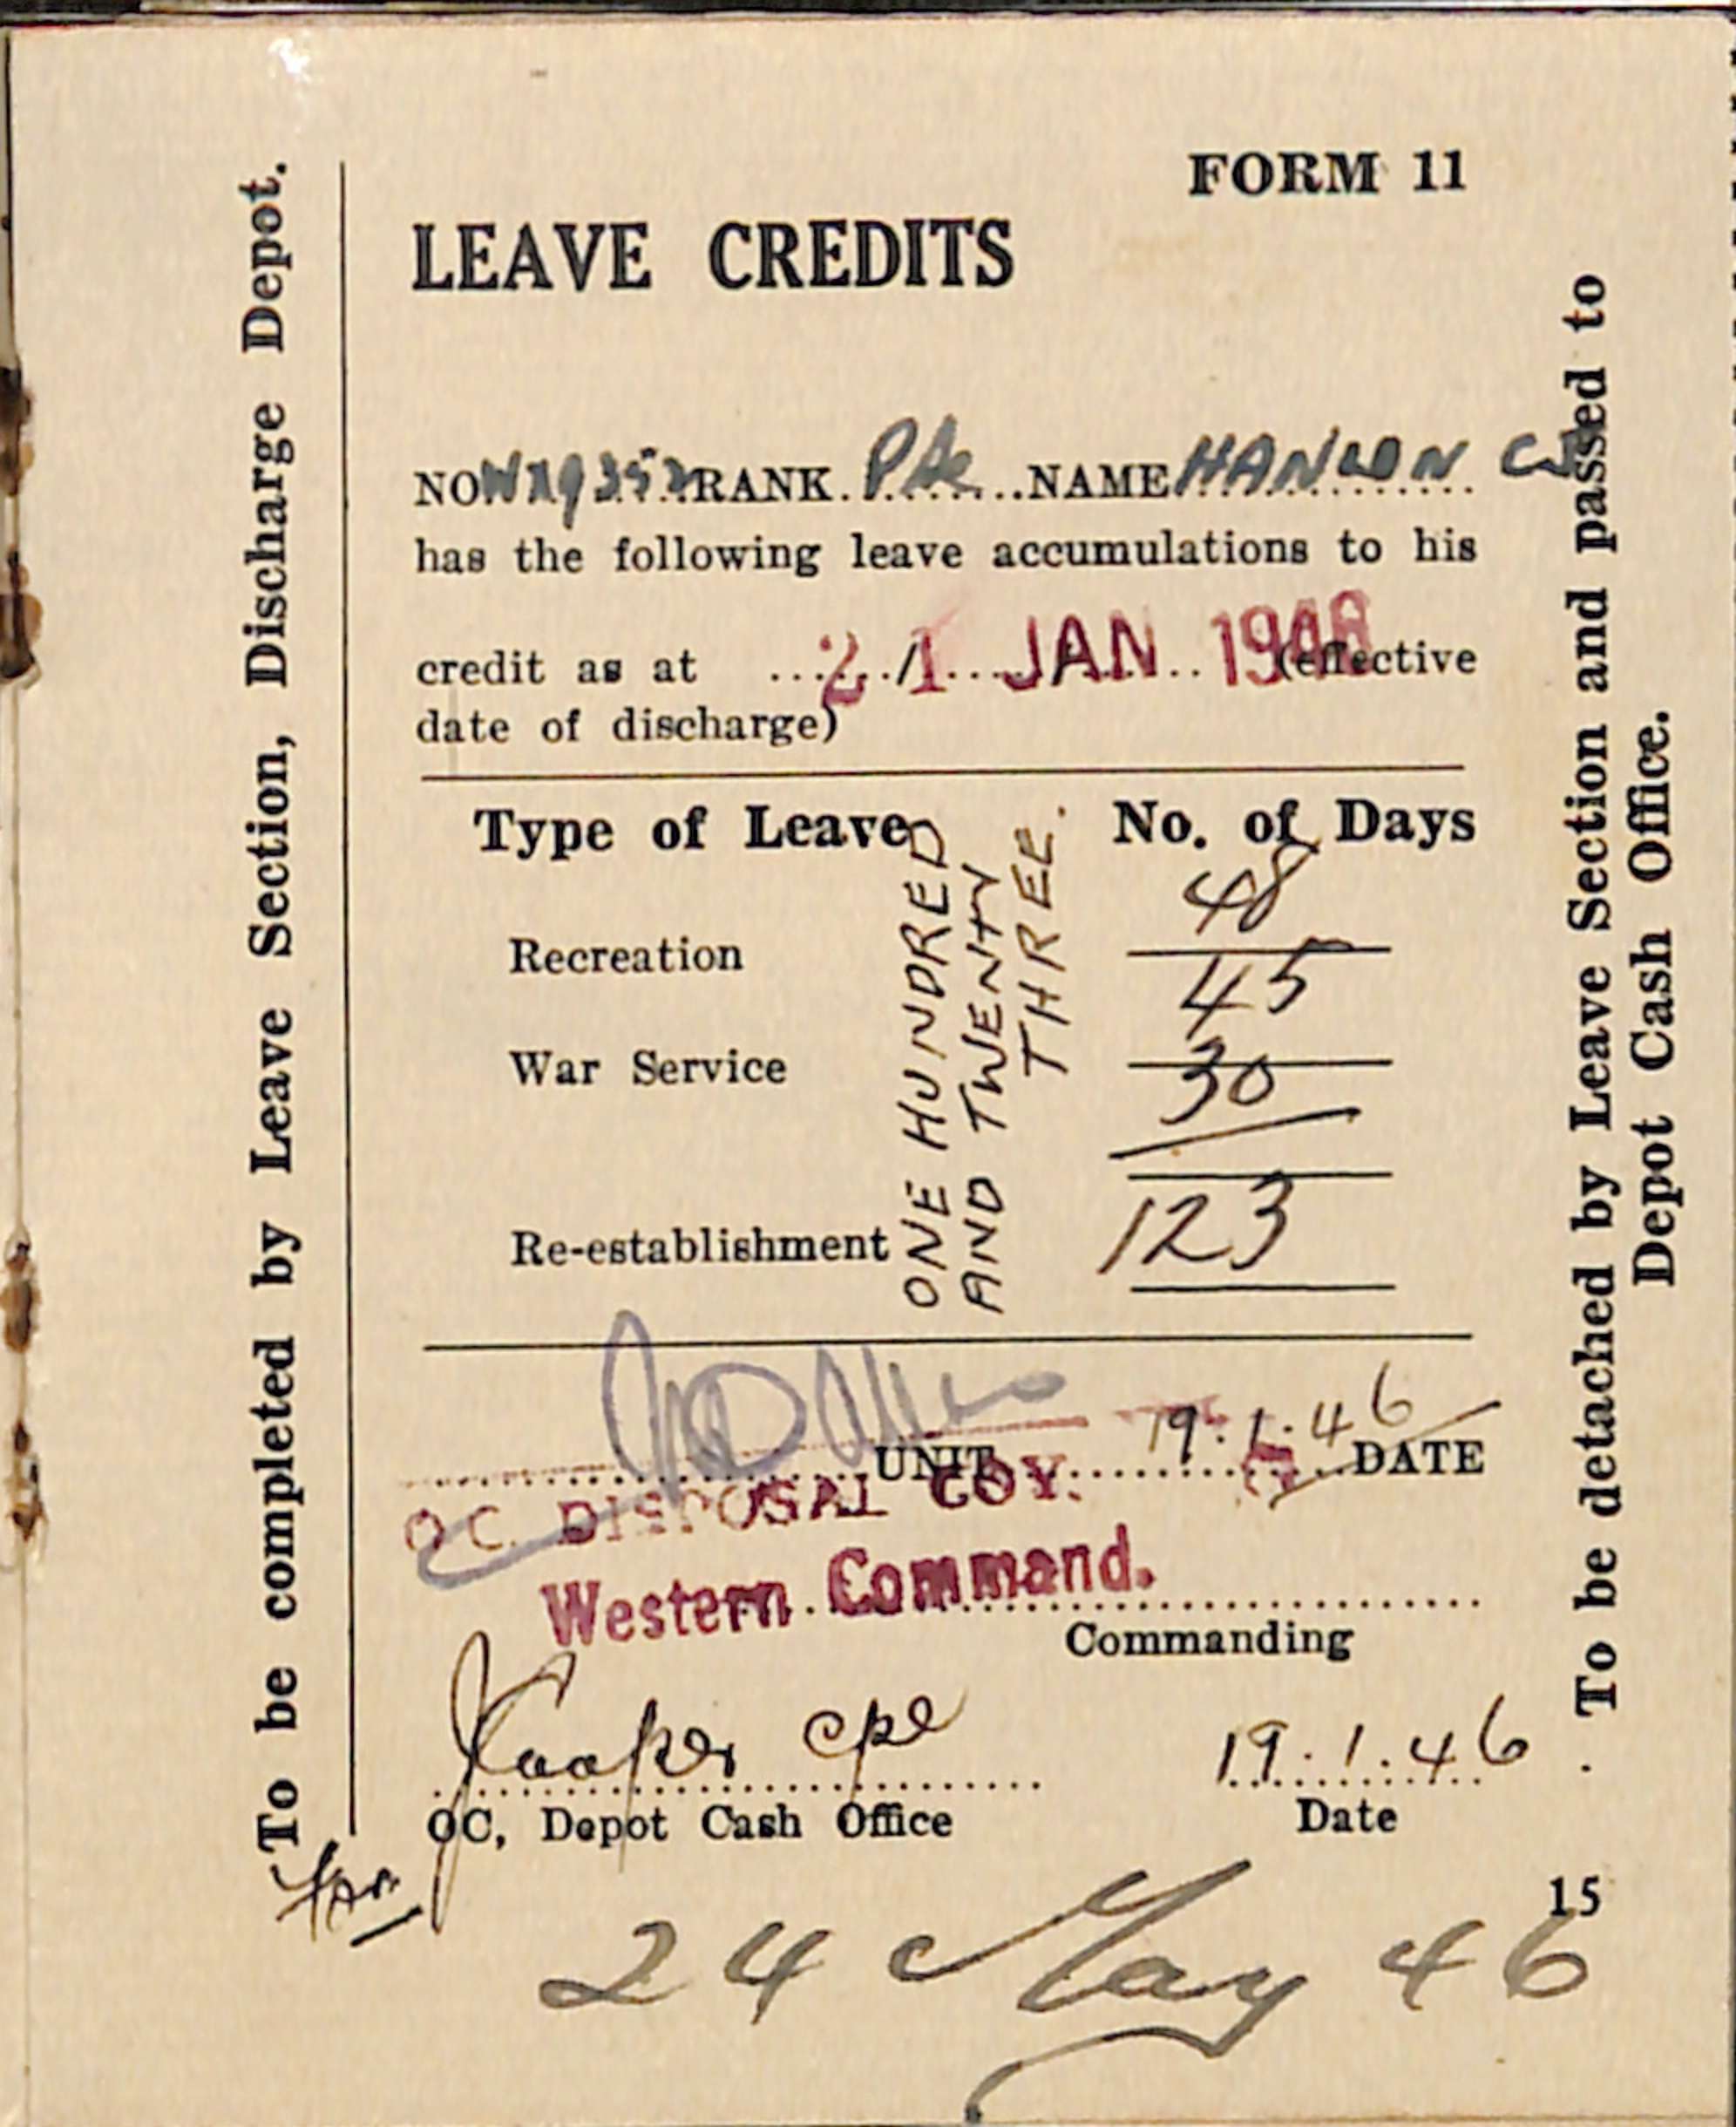 To be completed by Leave Section, Discharge Depot.
FORM 11
LEAVE CREDITS
NO WX9352 RANK Pte NAME HANLON CJ
has the following leave accumulations to his
credit as at 21 JAN 1946 (effective
date of discharge)
Type of Leave No. of Days
48
Recreation
45
War Service
30
Re-establishment 123
ONE HUNDRED
AND TWENTY
THREE.
19.1.46
UNIT DATE
OC. DISPOSAL COY.
Western Command.
Commanding
Cooper Cpl 19.1.46
OC, Depot Cash Office Date
15
24 May 46
To be detached by Leave Section and passed to
Depot Cash Office.